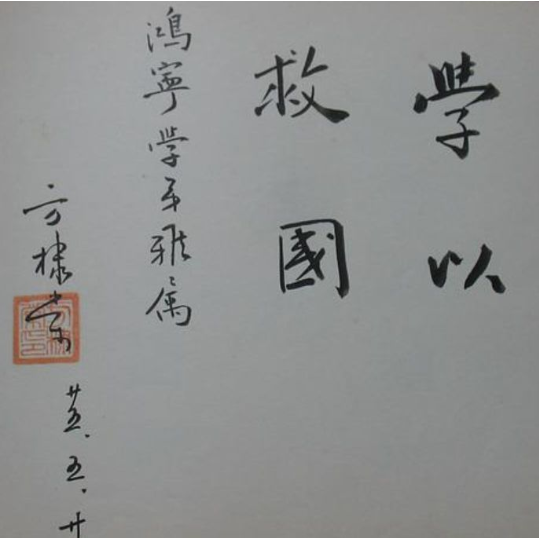 學以
救國
鴻寧学弟雅属
方棣棠
廿五.五.廿